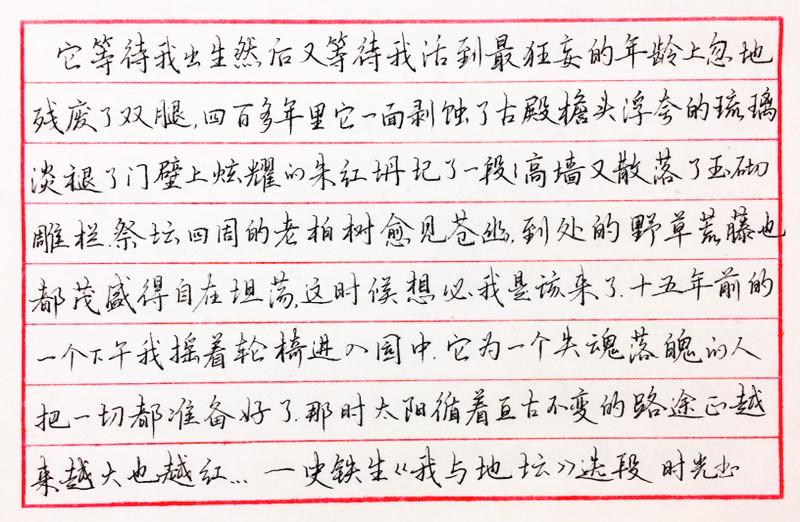 它等待我出生然后又等待我活到最狂妄的年龄上忽地
残废了双腿,四百多年里它一面剥蚀了古殿檐头浮夸的琉璃
淡褪了门壁上炫耀的朱红坍圮了一段段高墙又散落了玉砌
雕栏.祭坛四周的老柏树愈见苍幽,到处的野草荒藤也
都茂盛得自在坦荡,这时候想必我是该来了.十五年前的
一个下午我摇着轮椅进入园中.它为一个失魂落魄的人
把一切都准备好了.那时太阳循着亘古不变的路途正越
来越大也越红... 一史铁生《我与地坛》选段 时光书